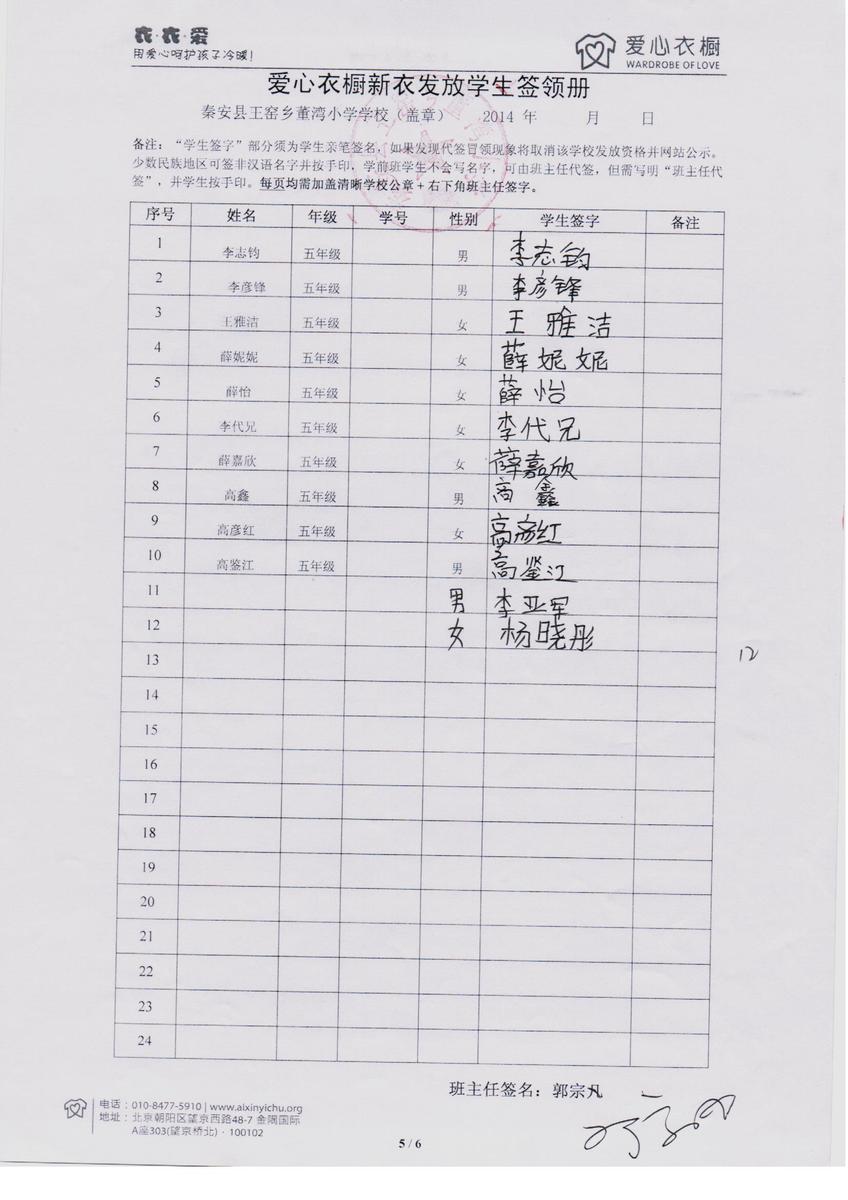 衣·衣·爱
用爱心呵护孩子冷暖!
爱心衣橱
WARDROBE OF LOVE
爱心衣橱新衣发放学生签领册
秦安县王窑乡董湾小学学校（盖章） 2014 年 月 日
备注：“学生签字”部分须为学生亲笔签名，如果发现代签冒领现象将取消该学校发放资格并网站公示。
少数民族地区可签非汉语名字并按手印，学前班学生不会写名字，可由班主任代签，但需写明“班主任代
签”，并学生按手印。每页均需加盖清晰学校公章+右下角班主任签字。
序号 姓名 年级 学号 性别 学生签字 备注
1 李志钧 五年级 男 李志钧
2 李彦锋 五年级 男 李彦锋
3 王雅洁 五年级 女 王雅洁
4 薛妮妮 五年级 女 薛妮妮
5 薛怡 五年级 女 薛怡
6 李代兄 五年级 女 李代兄
7 薛嘉欣 五年级 女 薛嘉欣
8 高鑫 五年级 男 高鑫
9 高彦红 五年级 女 高彦红
10 高鉴江 五年级 男 高鉴江
11 男 李亚军
12 女 杨晓彤
13 12
14
15
16
17
18
19
20
21
22
23
24
班主任签名：郭宗凡
电话：010-8477-5910 | www.aixinyichu.org
地址：北京朝阳区望京西路48-7 金隅国际
A座303(望京桥北)·100102
5 / 6